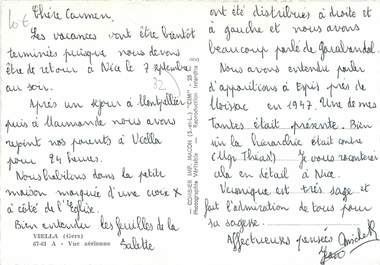 10€
Chère Carmen,
Les vacances vont être bientôt
terminées puisque nous devons
être de retour à Nice le 7 septembre
au soir.
Après un séjour à Montpellier
puis à Marmande nous avons
rejoint nos parents à Viella
pour 24 heures.
Nous habitons dans la petite
maison marquée d'une croix X
à côté de l'Eglise.
Bien entendu les feuilles de la
Salette
VIELLA (Gers)
67-61 A - Vue aérienne
32
COMBIER IMP. MACON (S.-&-L.) "CIM"
Photographie Véritable - Reproduction Interdite
ont été distribués à droite et
à gauche et nous avons
beaucoup parlé de Garabandal.
Nous avons entendu parler
d'apparitions à Espis près de
Moissac en 1947. Une de mes
Tantes était présente. Bien
sûr la hiérarchie était contre
(Mgr Théas). Je vous raconterai
cela en détail à Nice.
Véronique est très sage et
fait l'admiration de tous pour
sa sagesse.
Affectueuses pensées